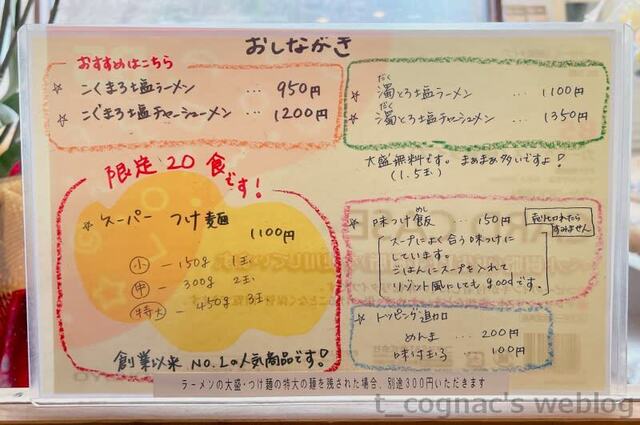 おしながき
おすすめはこちら
☆ こくまろ塩ラーメン … 950円
☆ こくまろ塩チャーシューメン … 1200円
だく
☆ 濁とろ塩ラーメン … 1100円
だく
☆ 濁とろ塩チャーシュメン … 1350円
大盛無料です。まあまあ多いですよ!
(1.5玉)
限定20食です!
☆ スーパーつけ麺
1100円
小 - 150g 1玉
中 - 300g 2玉
特大 - 450g 3玉
創業以来 NO.1の人気商品です!
めし
☆ 味つけ飯 … 150円
売り切れたら
すみません
スープによく合う味つけに
しています。
ごはんにスープを入れて
リゾット風にしてもgoodです。
☆ トッピング追加
めんま … 200円
味付玉子 100円
ラーメンの大盛・つけ麺の特大の麺を残された場合、別途300円いただきます
t_cognac's weblog